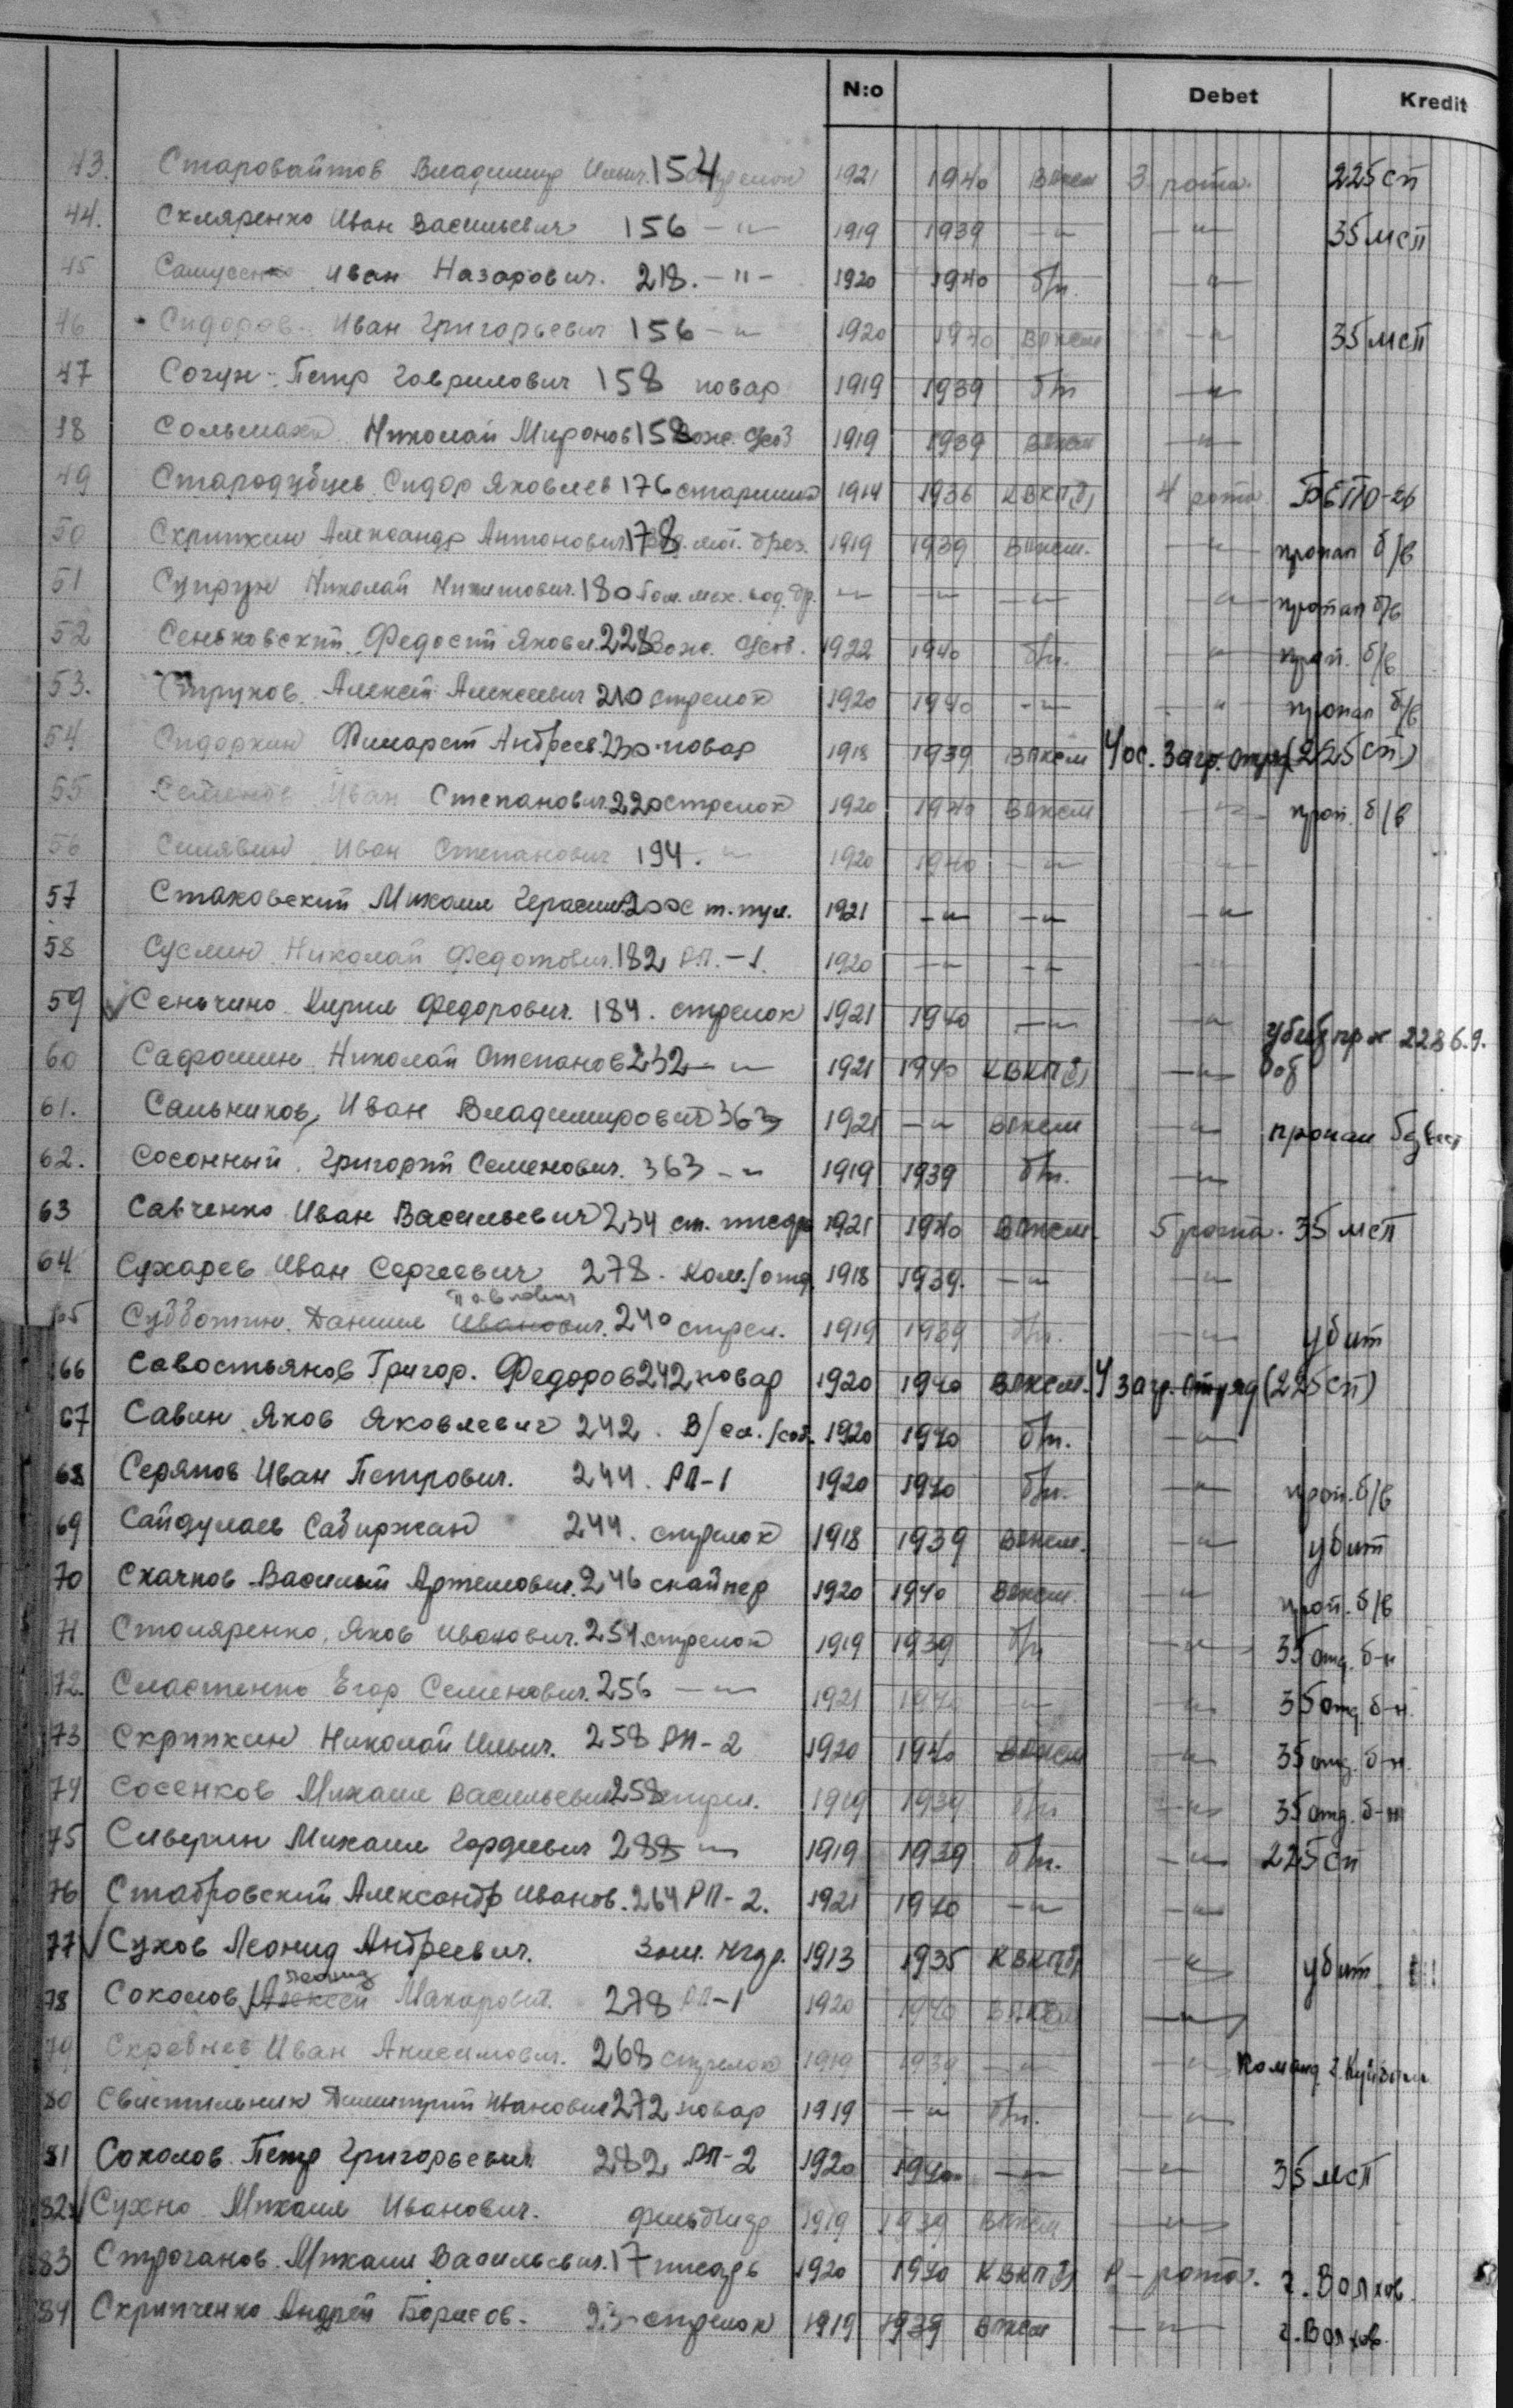 N:o Debet Kredit
43. Старовайтов Владимир Ильич. 154 стрелок 1921 1940 ВЛКСМ 3 рота. 225 сп
44. Скляренко Иван Васильевич 156 -"- 1919 1939 -"- -"- 35 мсп
45 Иван Назарович. 218. -"- 1920 1940 б/п. -"-
46 Сидоров Иван Григорьевич 156 -"- 1920 1940 ВЛКСМ -"- 35 мсп
47 Согун Петр Гаврилович 158 повар 1919 1939 б/п -"-
48 Николай Миронов 158 1919 1939 ВЛКСМ -"-
49 Стародубцев Сидор Яковлев 176 старшина 1914 1936 КВКП(б) 4 рота
50 Скрипкин Александр Антонович 178 1919 1939 ВЛКСМ. -"- пропал б/в
51 Супрун Николай Никитович. 180 -"- -"- -"- -"- пропал б/в
52 Сеньковский Федосий Яковл. 228 1922 1940 б/п. -"- проп. б/в
53. Струков Алексей Алексеевич 210 стрелок 1920 1940 -"- -"- пропал б/в
54 Сидоркин Филарет Андреев 230 повар 1918 1939 ВЛКСМ 4 ос. Загр. отряд (225 сп)
55 Семенов Иван Степанович. 220 стрелок 1920 1940 ВЛКСМ -"- проп. б/в
56 Силявин Иван Степанович 194. -"- 1920 1940 -"- -"-
57 Стаховский Михаил Герасим. 200 ст. пул. 1921 -"- -"- -"-
58 Суслин Николай Федотович. 182 РП.-1. 1920 -"- -"- -"-
59 Сеньчино Кирил Федорович. 184. стрелок 1921 1940 -"- -"- убит
60 Сафошин Николай Степанов 232 -"- 1921 1940 КВКП(б) -"-
61. Сальников, Иван Владимирович 363 1921 -"- ВЛКСМ -"- пропал
62. Сосонный Григорий Семенович. 363 -"- 1919 1939 б/п. -"-
63 Савченко Иван Васильевич 234 ст. писарь 1921 1940 ВЛКСМ. 5 рота. 35 мсп
64 Сухарев Иван Сергеевич 278. Ком./отд. 1918 1939. -"- -"-
65 Субботин. Даниил Иванович. Павлович 240 стрел. 1919 1939 б/п. -"- убит
66 Савостьянов Григор. Федоров 242 повар 1920 1940 ВЛКСМ. 4 загр. отряд (225 сп)
67 Савин Яков Яковлевич 242. 1920 1940 б/п. -"-
68 Серяпов Иван Петрович. 244. РП-1 1920 1940 б/п. -"- проп. б/в
69 Сайдулаев Сабиржан 244. стрелок 1918 1939 ВЛКСМ. -"- убит
70 Скачков Василий Артемович. 246 снайпер 1920 1940 ВЛКСМ. -"- проп. б/в
71 Столяренко, Яков Иванович. 254. стрелок 1919 1939 б/п -"- 35 отд. б-н
72. Сластенко Егор Семенович. 256 -"- 1921 1940 -"- -"- 35 отд. б-н
73 Скрипкин Николай Ильич. 258 РП-2 1920 1940 ВЛКСМ -"- 35 отд. б-н.
74 Сосенков Михаил Васильевич 258 стрел. 1919 1939 б/п -"- 35 отд. б-н
75 Сиверин Михаил Гордеевич 288 -"- 1919 1939 б/п. -"- 225 сп
76 Стабровский Александр Иванов. 264 РП-2. 1921 1940 -"- -"-
77 Сухов Леонид Андреевич. 1913 1935 КВКП(б) -"- убит
78 Соколов Алексей Леонид Макарович. 278 РП-1 1920 1940 ВЛКСМ -"-
79 Иван Анисимович. 268 стрелок 1919 1939 -"- -"- Команд. г.
80 Свистильник Димитрий Иванович 272 повар 1919 -"- б/п. -"-
81 Соколов Петр Григорьевич 282 РП-2 1920 1940 -"- -"- 35 мсп
82 Сухно Михаил Иванович. 1919 1939 ВЛКСМ -"-
83 Строганов Михаил Васильевич. 17 писарь 1920 1940 КВКП(б) рота. г. Волхов.
84 Скрипченко Андрей Борисов. 23 стрелок 1919 1939 ВЛКСМ -"- г. Волхов